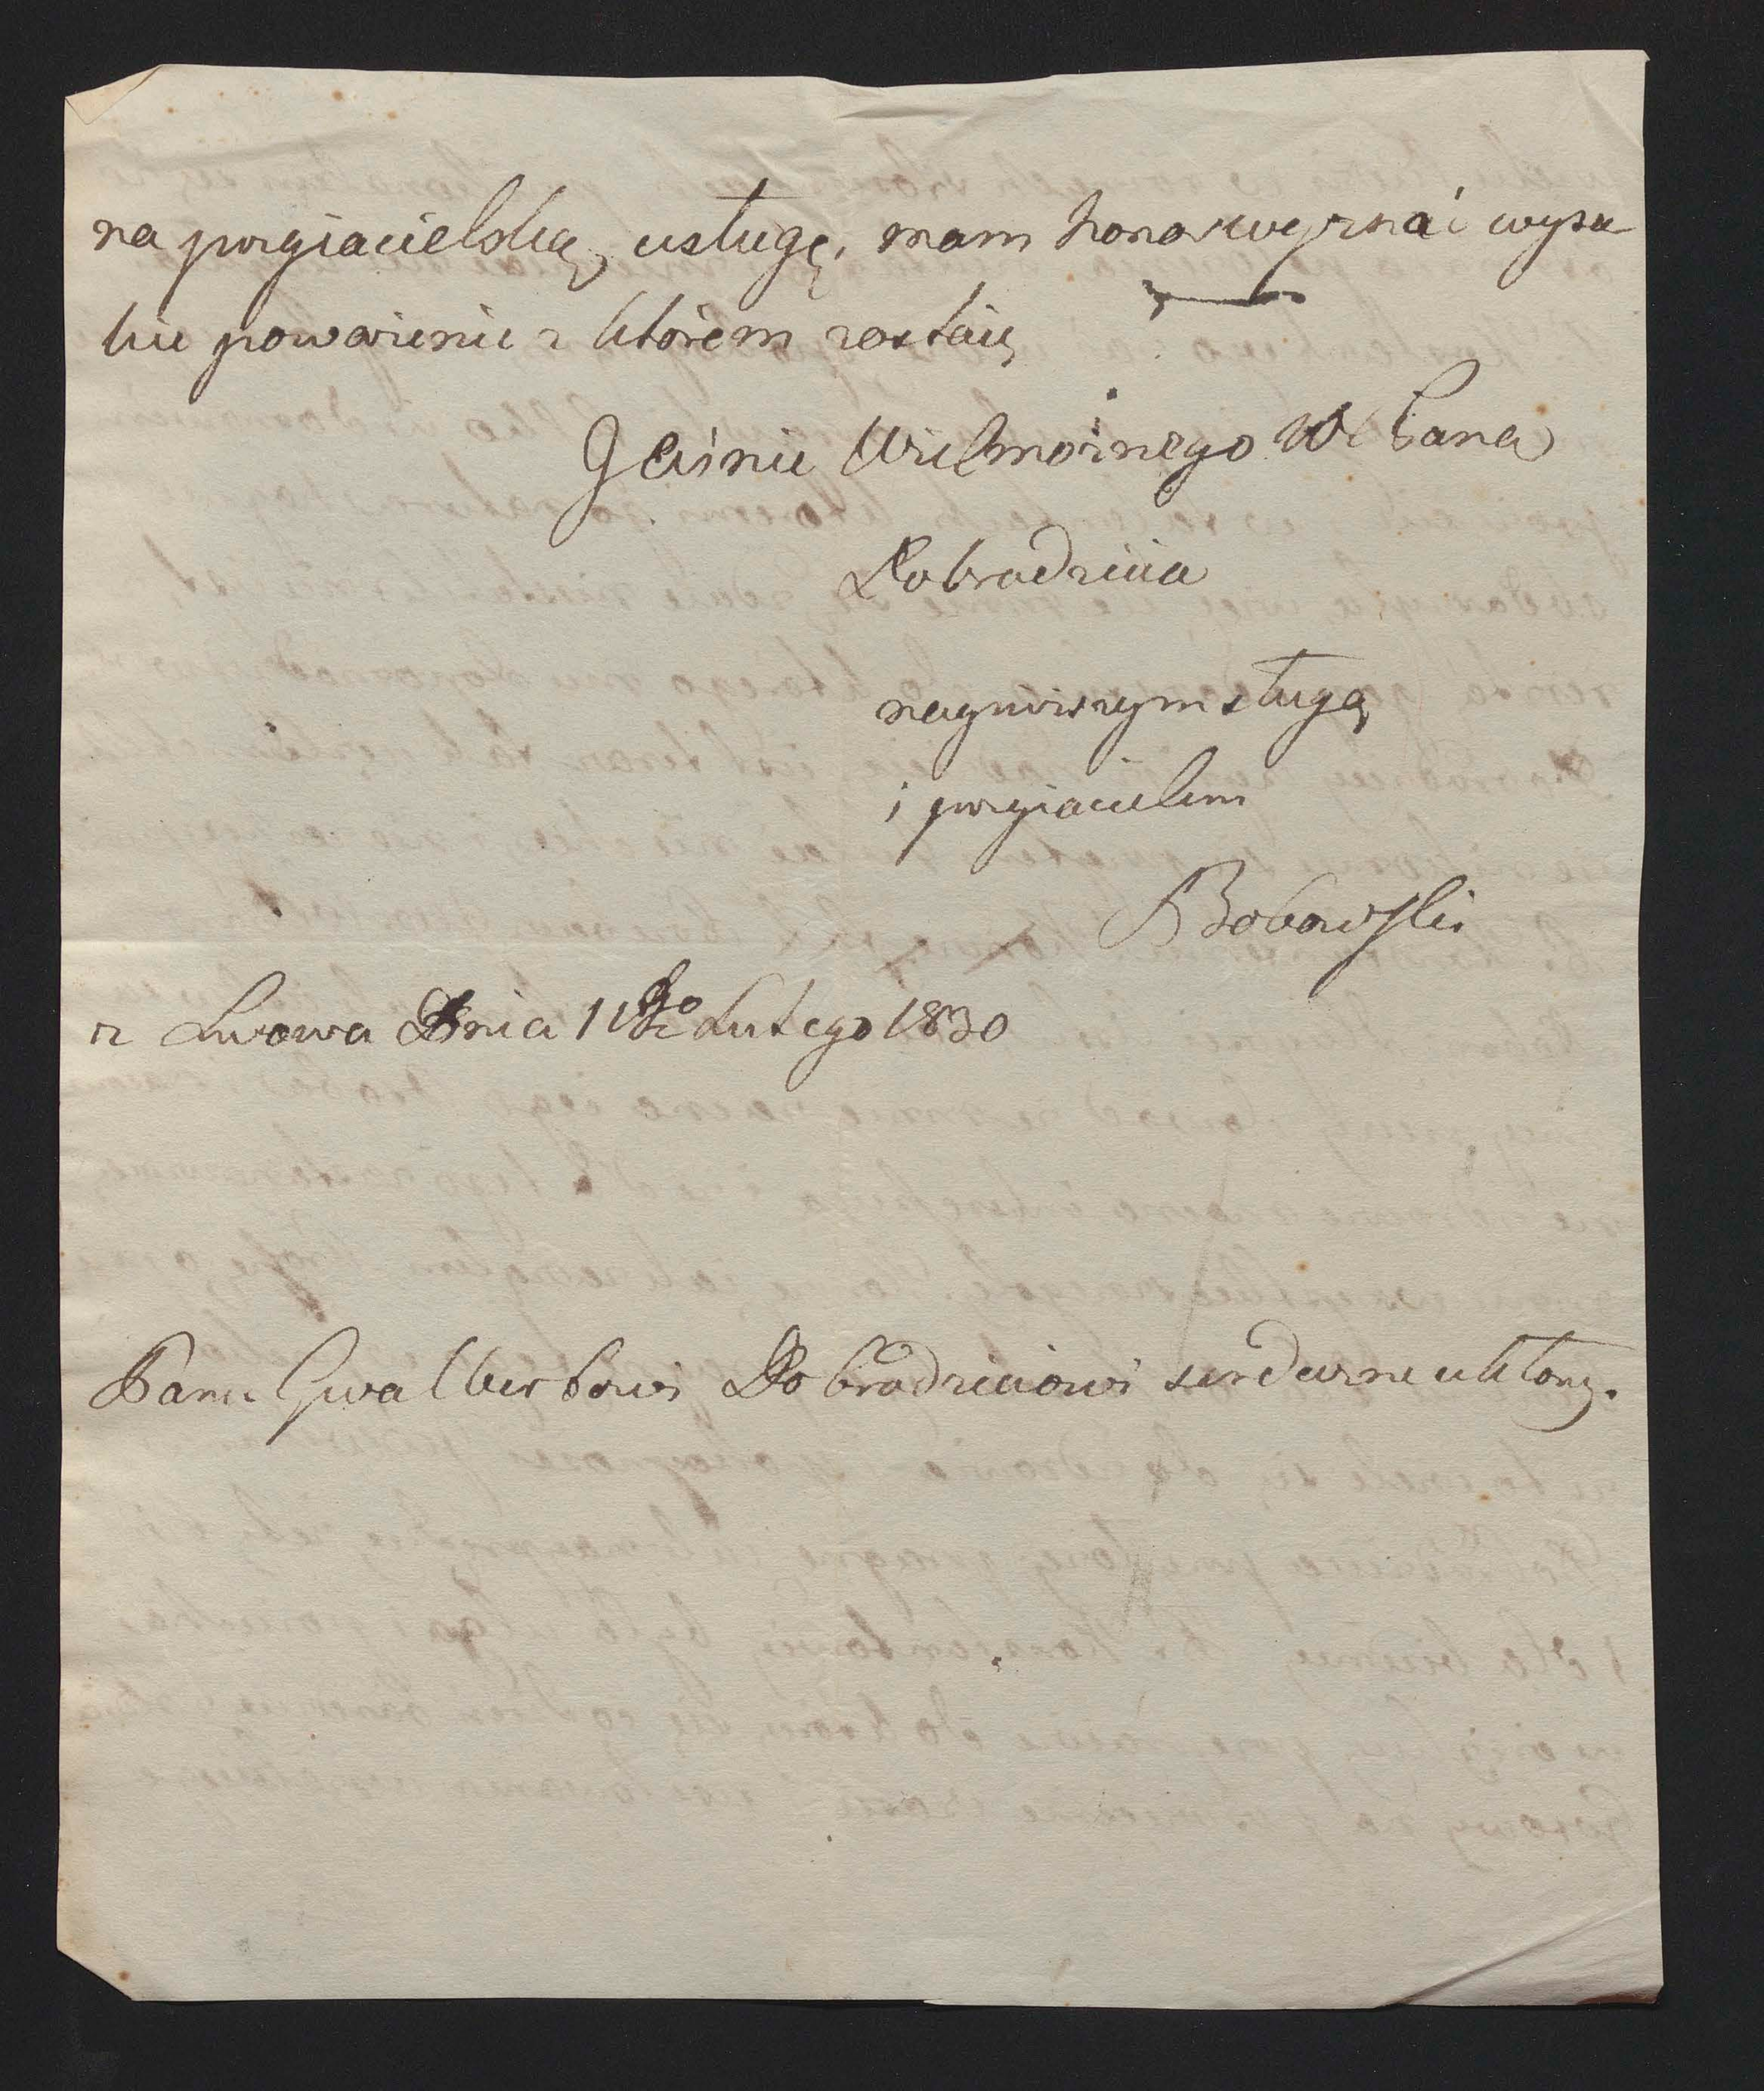 na przyiacielską usługę, mam honor wyznać wyso
kie poważenie z którem zostaię
Jaśnie Wielmożnego W Pana
Dobrodzieia
nayniższym sługą
i przyiacielem
Bobowski
z Lwowa Dnia 11go Lutego 1830
Panu Gwalbertowi Dobrodzieiowi serdeczne ukłony.